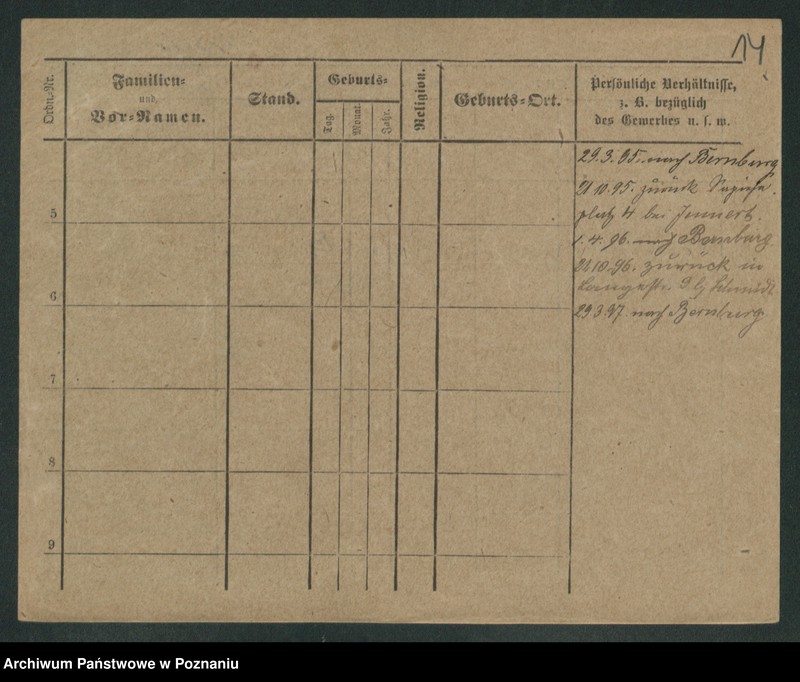 14
Ordn.-Nr.
Familien-
und
Vor-Namen.
Stand.
Geburts-
Tag.
Monat.
Jahr.
Religion.
Geburts-Ort.
Persönliche Verhältnisse,
z. B. bezüglich
des Gewerbes u. s. w.
29.3.95. nach Bernburg
21 10.95. zurück Sapieha
platz 4 bei
5
1.4.96. nach Bernburg
21 10.96. zurück in
Langestr. 3 Schmidt
6
29.3.97 nach Bernburg
7
8
9
Archiwum Państwowe w Poznaniu